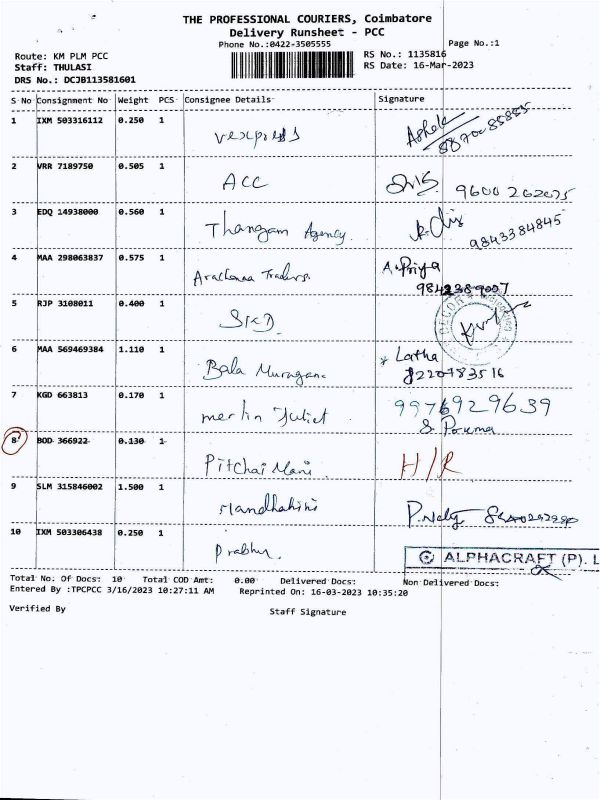 THE PROFESSIONAL COURIERS, Coimbatore
Delivery Runsheet - PCC
Phone No.:0422-3505555
Page No.:1
Route: KM PLM PCC
RS No.: 1135816
Staff: THULASI
RS Date: 16-Mar-2023
DRS No.: DCJB113581601
S No Consignment No Weight PCS Consignee Details Signature
1 IXM 503316112 0.250 1 vexpress Ashok
2 VRR 7189750 0.505 1 ACC 9600 262075
3 EDQ 14938000 0.560 1 Thangam Agency 9843384845
4 MAA 298063837 0.575 1 Traders A. Priya
9842389007
5 RJP 3108011 0.400 1 SKD
6 MAA 569469384 1.110 1 Bala Murugan. Latha
8220783516
7 KGD 663813 0.170 1 merlin Juliet 9976929639
8 BOD 366922 0.130 1 Pitchai Mani H/R
9 SLM 315846002 1.500 1 Mandhakini
10 IXM 503306438 0.250 1 Prabhu.
ALPHACRAFT (P). L
Total No. Of Docs: 10 Total COD Amt: 0.00 Delivered Docs: Non Delivered Docs:
Entered By :TPCPCC 3/16/2023 10:27:11 AM Reprinted On: 16-03-2023 10:35:20
Verified By Staff Signature